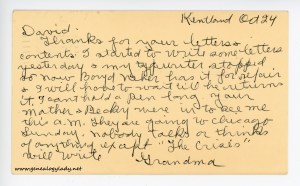 Kentland Oct 24
David:
Thanks for your letters &
contents. I started to write some letters
yesterday & my typewriter stopped
so now Boyd has it for repairs
& I will have to wait till he returns
it, I cant hold a pen long. Your
mother & Becky were in to see me
this a.m. They are going to Chicago
Sunday. nobody talks or thinks
of anything except "The Crisis"
will write
Grandma
www.genealogylady.net